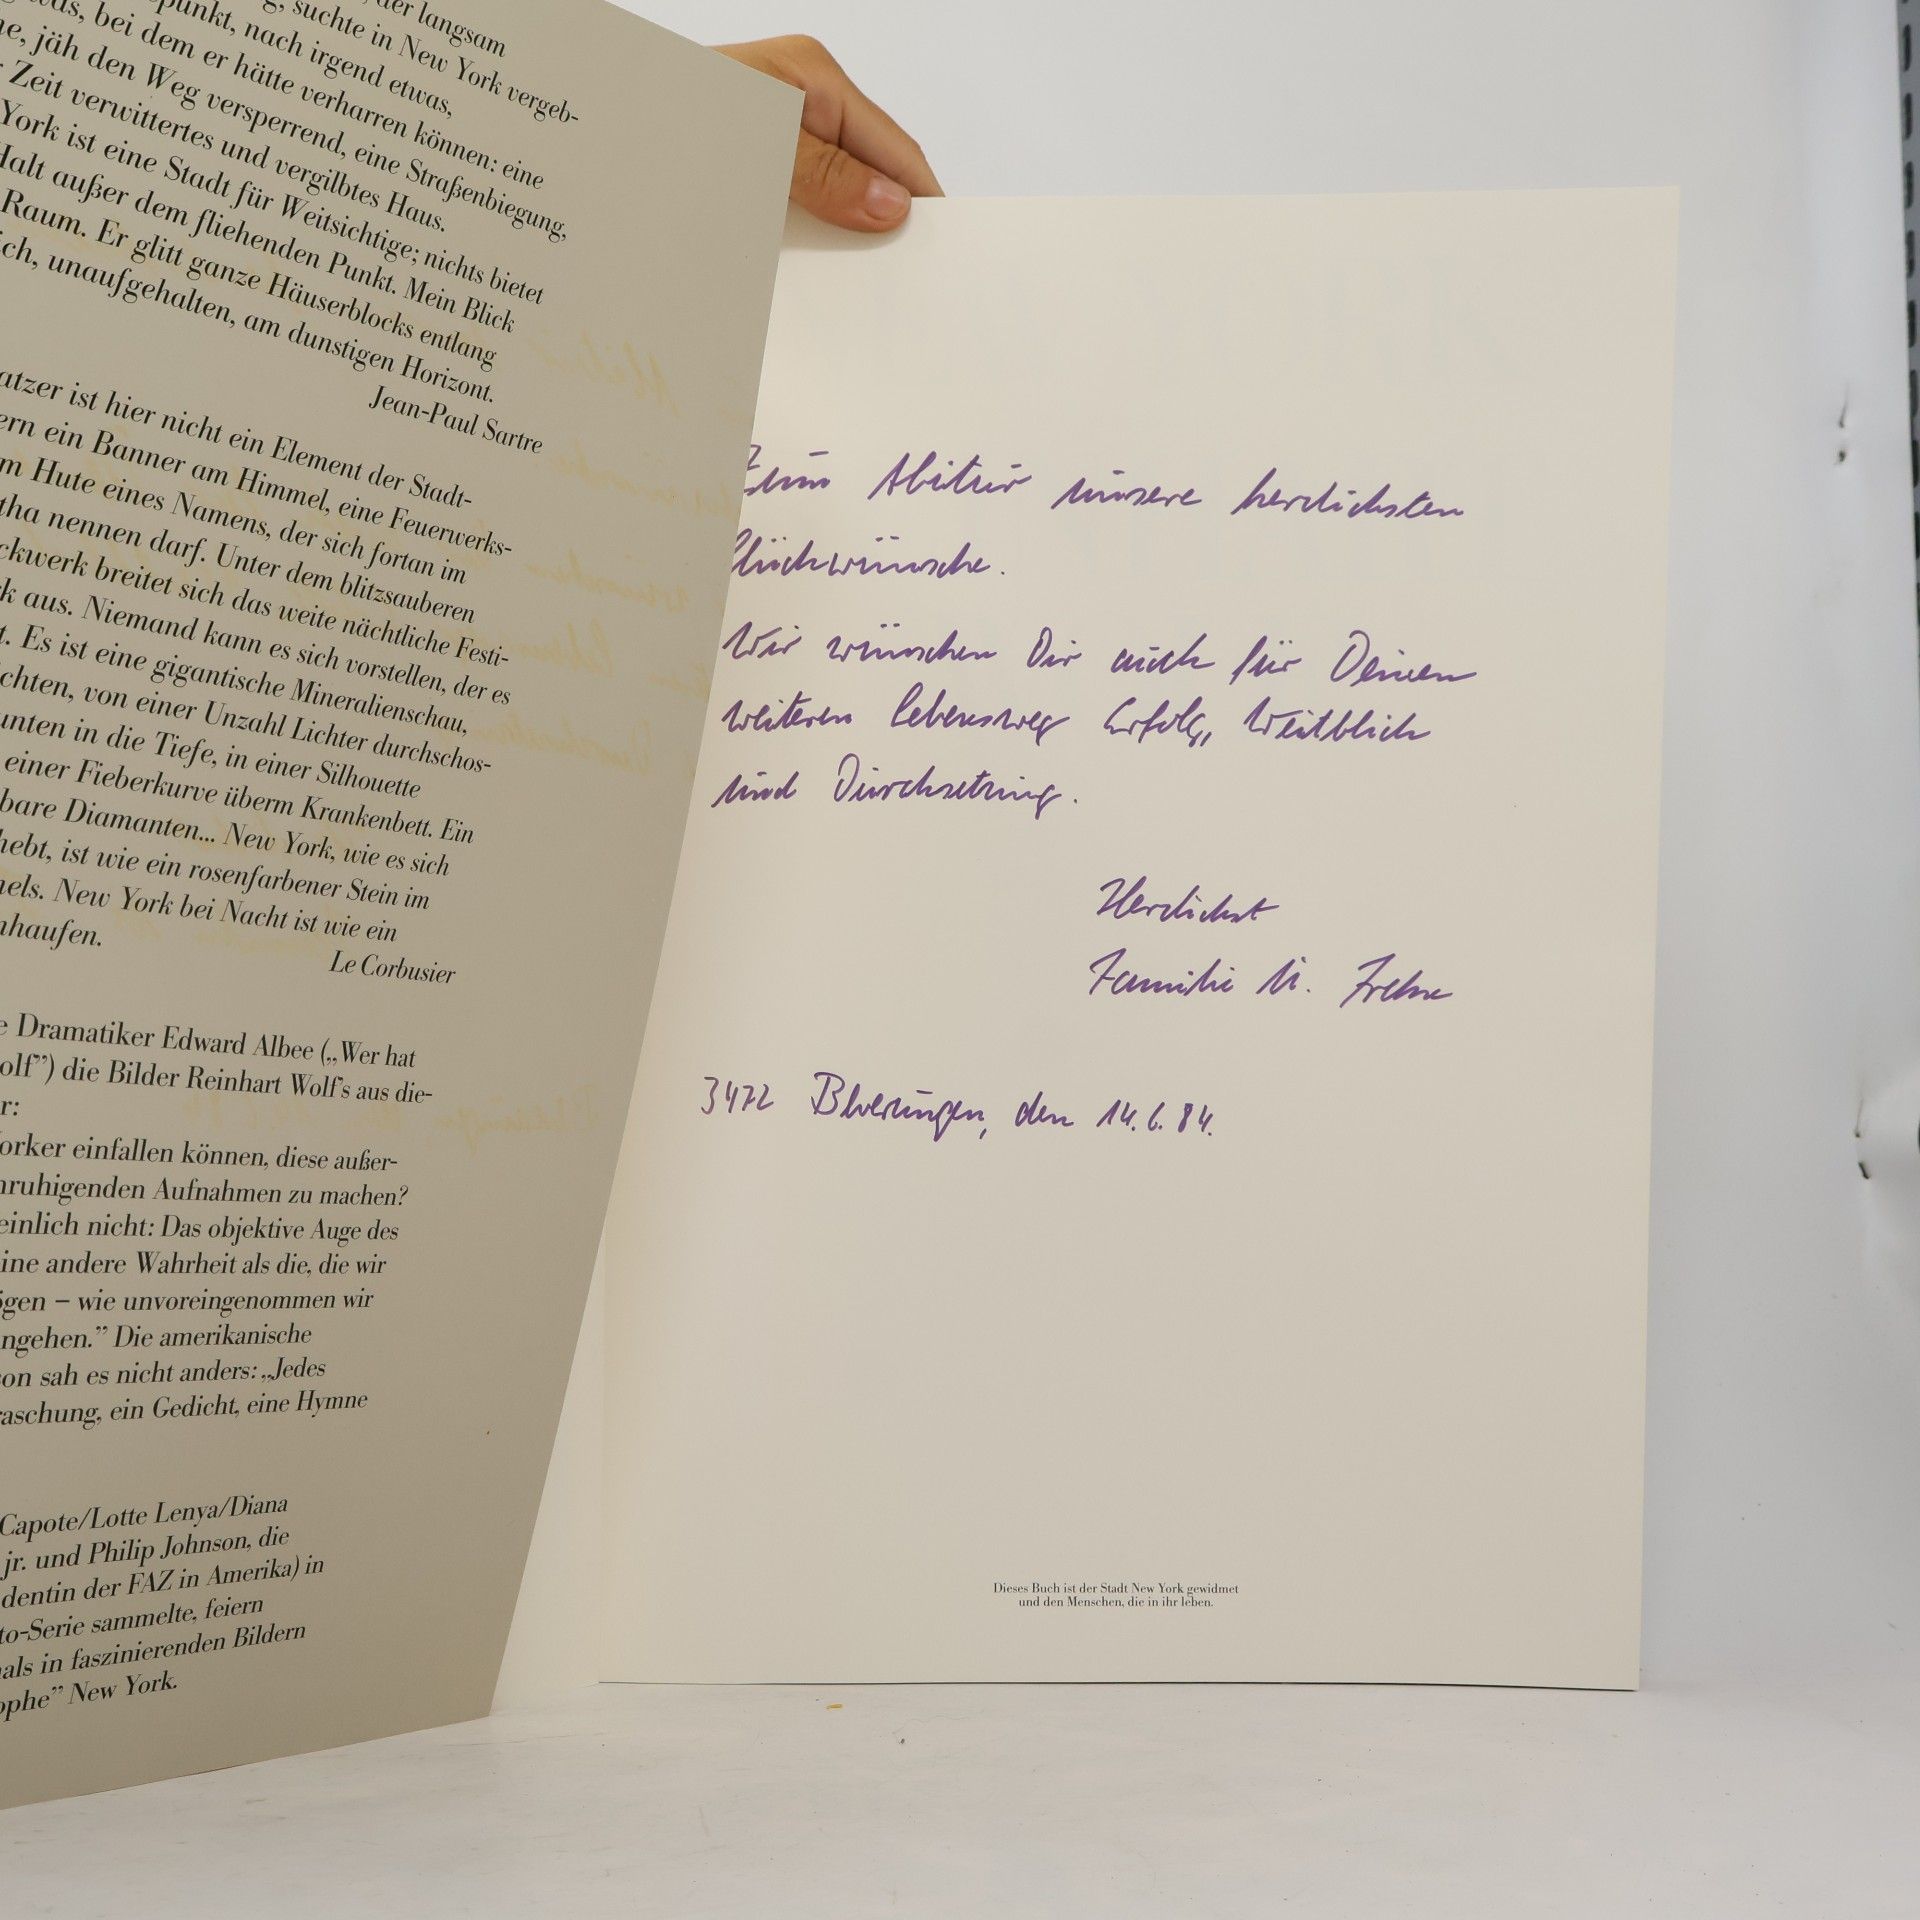 der langsam
suchte in New York vergeb-
punkt, nach irgend etwas,
bei dem er hätte verharren können: eine
jäh den Weg versperrend, eine Straßenbiegung,
Zeit verwittertes und vergilbtes Haus.
York ist eine Stadt für Weitsichtige; nichts bietet
Halt außer dem fliehenden Punkt. Mein Blick
Raum. Er glitt ganze Häuserblocks entlang
ich, unaufgehalten, am dunstigen Horizont.
Jean-Paul Sartre
atzer ist hier nicht ein Element der Stadt-
ern ein Banner am Himmel, eine Feuerwerks-
m Hute eines Namens, der sich fortan im
tha nennen darf. Unter dem blitzsauberen
ckwerk breitet sich das weite nächtliche Festi-
k aus. Niemand kann es sich vorstellen, der es
t. Es ist eine gigantische Mineralienschau,
chten, von einer Unzahl Lichter durchschos-
unten in die Tiefe, in einer Silhouette
einer Fieberkurve überm Krankenbett. Ein
bare Diamanten... New York, wie es sich
hebt, ist wie ein rosenfarbener Stein im
nels. New York bei Nacht ist wie ein
nhaufen.
Le Corbusier
e Dramatiker Edward Albee („Wer hat
olf”) die Bilder Reinhart Wolf's aus die-
r:
orker einfallen können, diese außer-
nruhigenden Aufnahmen zu machen?
einlich nicht: Das objektive Auge des
ine andere Wahrheit als die, die wir
ögen – wie unvoreingenommen wir
ngehen.” Die amerikanische
on sah es nicht anders: „Jedes
raschung, ein Gedicht, eine Hymne
Capote/Lotte Lenya/Diana
jr. und Philip Johnson, die
dentin der FAZ in Amerika) in
to-Serie sammelte, feiern
als in faszinierenden Bildern
ophe” New York.
Zum Abitur unsere herzlichsten
Glückwünsche.
Wir wünschen Dir auch für Deinen
weiteren Lebensweg Erfolg, Weitblick
und Durchsetzung.
Herzlichst
Familie U.
3472 Beverungen, den 14.6.84.
Dieses Buch ist der Stadt New York gewidmet
und den Menschen, die in ihr leben.